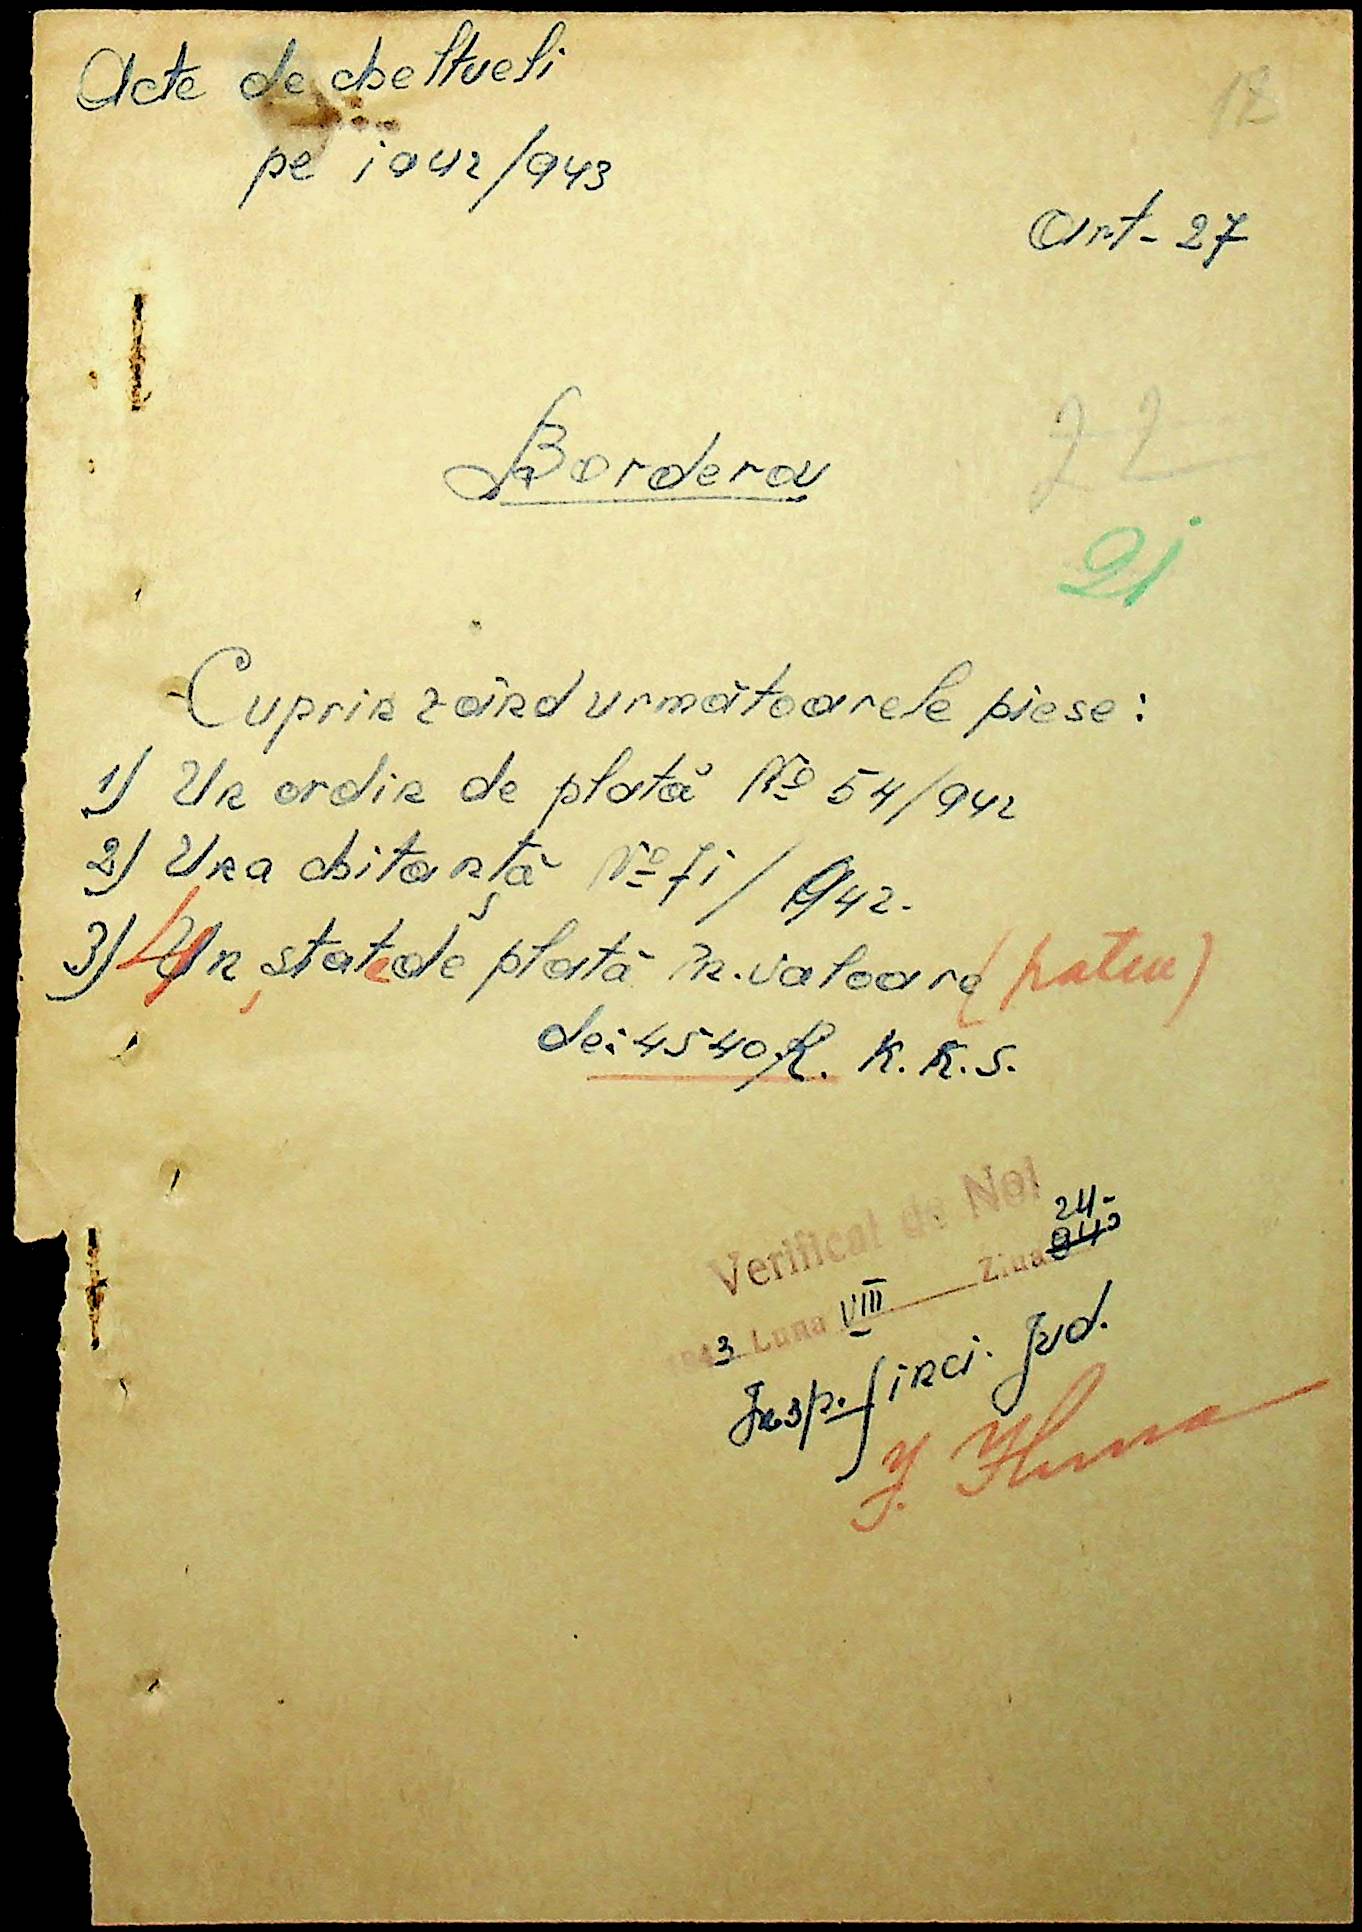 Acte de cheltueli
12
pe 1942/943
Art- 27
Borderou
22
21
Cuprinzând următoarele piese:
1) Un ordin de plată № 54/942
2) Una chitanță № 71/942.
3) 4 Un, state de plată în valoare (patru)
de: 4540 R. K.K.S.
Verificat de Noi
24-
1943 Luna VIII Ziua
Insp. financi. Jud.